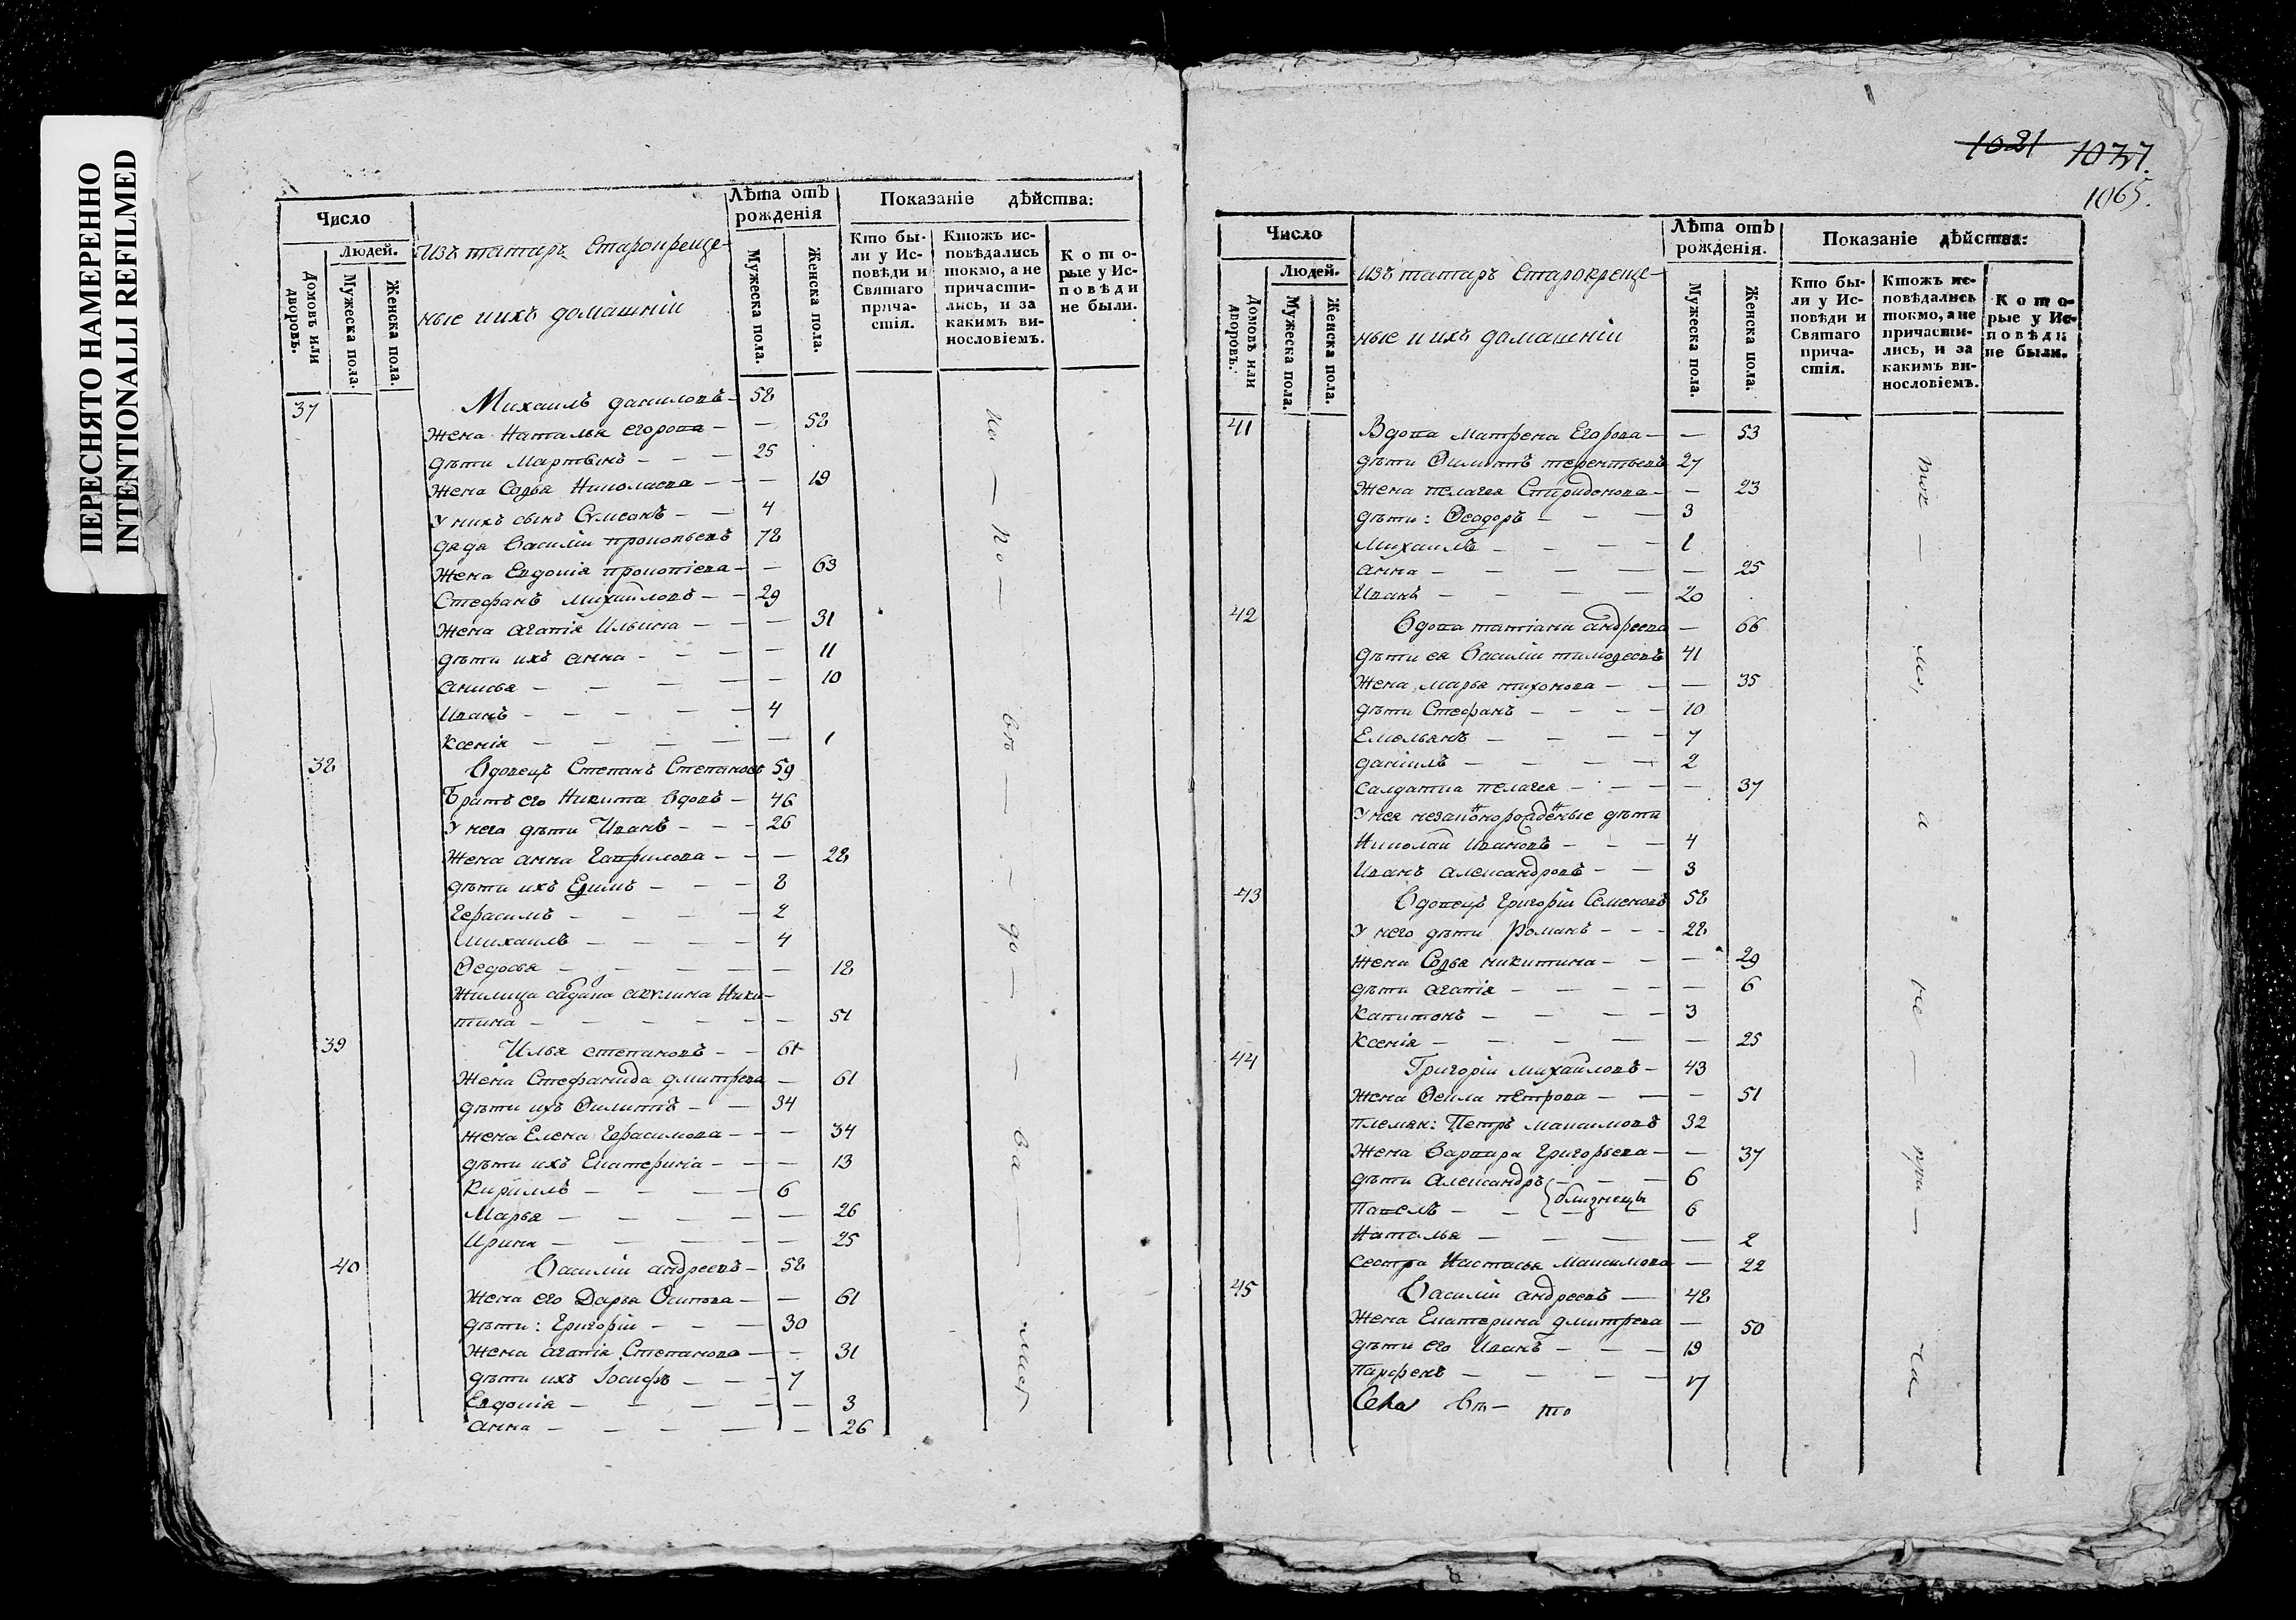 ПЕРЕСНЯТО НАМЕРЕННО
INTENTIONALLI REFILMED
Число
Людей.
Домовъ или дворовъ.
Мужеска пола.
Женска пола.
Изъ татаръ Старокреще-
ные и ихъ домашнiи
Лѣта отъ рожденiя
Мужеска пола.
Женска пола.
Показанiе дѣйства:
Кто бы-
ли у Ис-
повѣди и
Святаго
прича-
стiя.
Ктожъ ис-
повѣдались
токмо, а не
причасти-
лись, и за
какимъ ви-
нословiемъ.
Кото-
рые у Ис-
повѣди
не были.
37 Михаилъ даниловъ – 58
Жена Наталья егорова – – 58
дѣти Мартынъ – – – 25
Жена Софья Николаева – – – 19
У нихъ сынъ Сѵмеонъ – – 4
дядя Василiи прокопьевъ 78
Жена Евдокiя прокопiева – – 63
Стефанъ михайловъ – – 29
Жена агапiя Ильина – – – 31
дѣти ихъ анна – – – – 11
анисья – – – – – 10
Иванъ – – – – – 4
Ксенiя – – – – – 1
38 Вдовецъ Степанъ Степановъ 59
Братъ его Никита вдовъ – 46
У него дѣти Иванъ – – – 26
Жена анна Гаврилова – – – 28
дѣти ихъ Ефимъ – – – 8
Герасимъ – – – – 2
Михаилъ – – – – 4
Ѳедосья – – – – – 12
Жилица акѵлина Ники-
тина – – – – – – 51
39 Илья степановъ – – 61
Жена Стефанида дмитрева – 61
дѣти ихъ Филиппъ – – 34
жена Елена Герасимова – – – 34
дѣти ихъ Екатеринiа – – – 13
Кириллъ – – – – 6
Марья – – – – – 26
Ирина – – – – – 25
40 Василiи андреевъ – 58
Жена его Дарья Осипова – – 61
дѣти: Григорiи – – – 30
Жена агапiя Степанова – – 31
дѣти ихъ Iосифъ – – – 7
Евдокiя – – – – – – 3
анна – – – – – – 26
ис – по – вѣ – до – ва – лис
1021 1037.
1065.
Число
Людей.
Домовъ или дворовъ.
Мужеска пола.
Женска пола.
Изъ татаръ Старокреще-
ные и ихъ домашнiи
Лѣта отъ рожденiя.
Мужеска пола.
Женска пола.
Показанiе дѣйства:
Кто бы-
ли у Ис-
повѣди и
Святаго
прича-
стiя.
Ктожъ ис-
повѣдались
токмо, а не
причасти-
лись, и за
какимъ ви-
нословiемъ.
Кото-
рые у Ис-
повѣди
не были.
41 Вдова матрена Егорова – – 53
дѣти Филиппъ терентьевъ 27
Жена пелагея Спиридонова – – 23
дѣти: Ѳеодоръ – – – 3
Михаилъ – – – – 1
анна – – – – – 25
Иванъ – – – – 20
42 Вдова татiана андреева – 66
дѣти ея Василiи тимофеевъ 41
Жена марья тихонова – – – 35
дѣти Стефанъ – – – – 10
Емельянъ – – – – 7
данiилъ – – – – 2
салдатка пелагея – – – – 37
У нея незаконорожденные дѣти
Николай Ивановъ – – – 4
Иванъ александровъ – – 3
43 Вдовецъ Григорiи Семеновъ 58
У него дѣти Романъ – – – 28
Жена Софья никитина – – – 29
дѣти агапiя – – – – – 6
Капитонъ – – – – 3
Ксенiя – – – – – 25
44 Григорiи михайловъ – 43
Жена Ѳекла петрова – – – 51
племян: Петръ Максимовъ 32
Жена Варвара Григорьева – – 37
дѣти александръ – – – 6
Павелъ – – } близнецы 6
Наталья – – – – 2
Сестра Настасья Максимова – 22
45 Василiи андреевъ – 48
Жена Екатерина дмитрева – 50
дѣти его Иванъ – – – 19
Парфенъ – – – – 7
Села вѣ – то
ток – мо, а не – при – ча